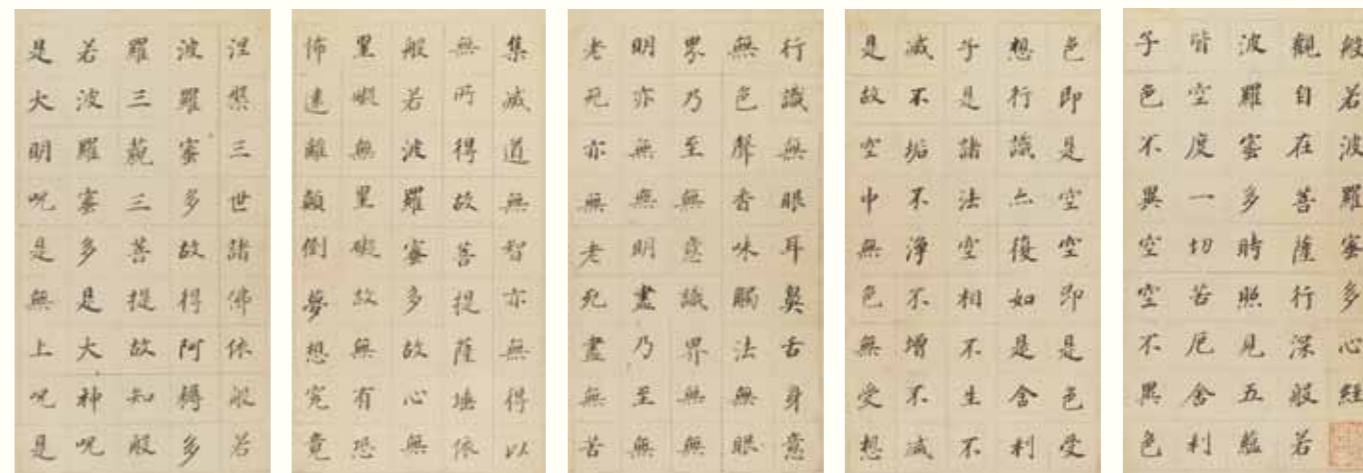 般若波羅蜜多心經
觀自在菩薩行深般若
波羅蜜多時照見五蘊
皆空度一切苦厄舍利
子色不異空空不異色
色即是空空即是色受
想行識亦復如是舍利
子是諸法空相不生不
滅不垢不淨不增不減
是故空中無色無受想
行識無眼耳鼻舌身意
無色聲香味觸法無眼
界乃至無意識界無無
明亦無無明盡乃至無
老死亦無老死盡無苦
集滅道無智亦無得以
無所得故菩提薩埵依
般若波羅蜜多故心無
罣礙無罣礙故無有恐
怖遠離顛倒夢想究竟
涅槃三世諸佛依般若
波羅蜜多故得阿耨多
羅三藐三菩提故知般
若波羅蜜多是大神呪
是大明呪是無上呪是